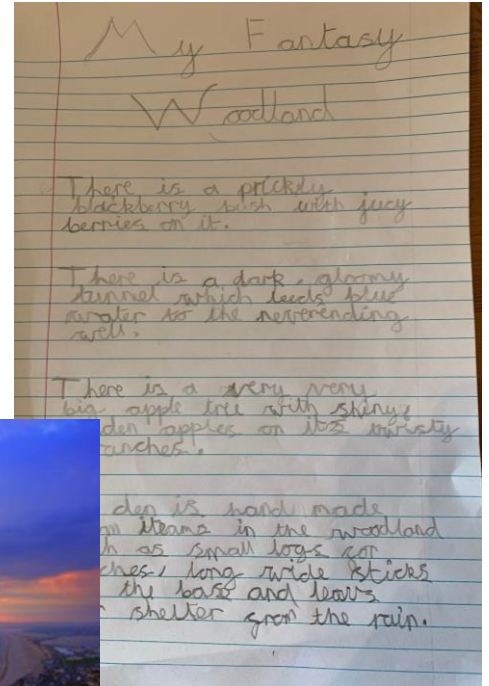 My Fantasy
Woodland
There is a prickily
blackberry bush with jucy
berries on it.
There is a dark, gloomy
tunnel which leeds blue
water to the neverending
well.
There is a very very
big apple tree with shiny,
den apples on its twisty
anches.
den is hand made
iteams in the woodland
h as small logs for
ches, long wide sticks
the base and leavs
shelter from the rain.